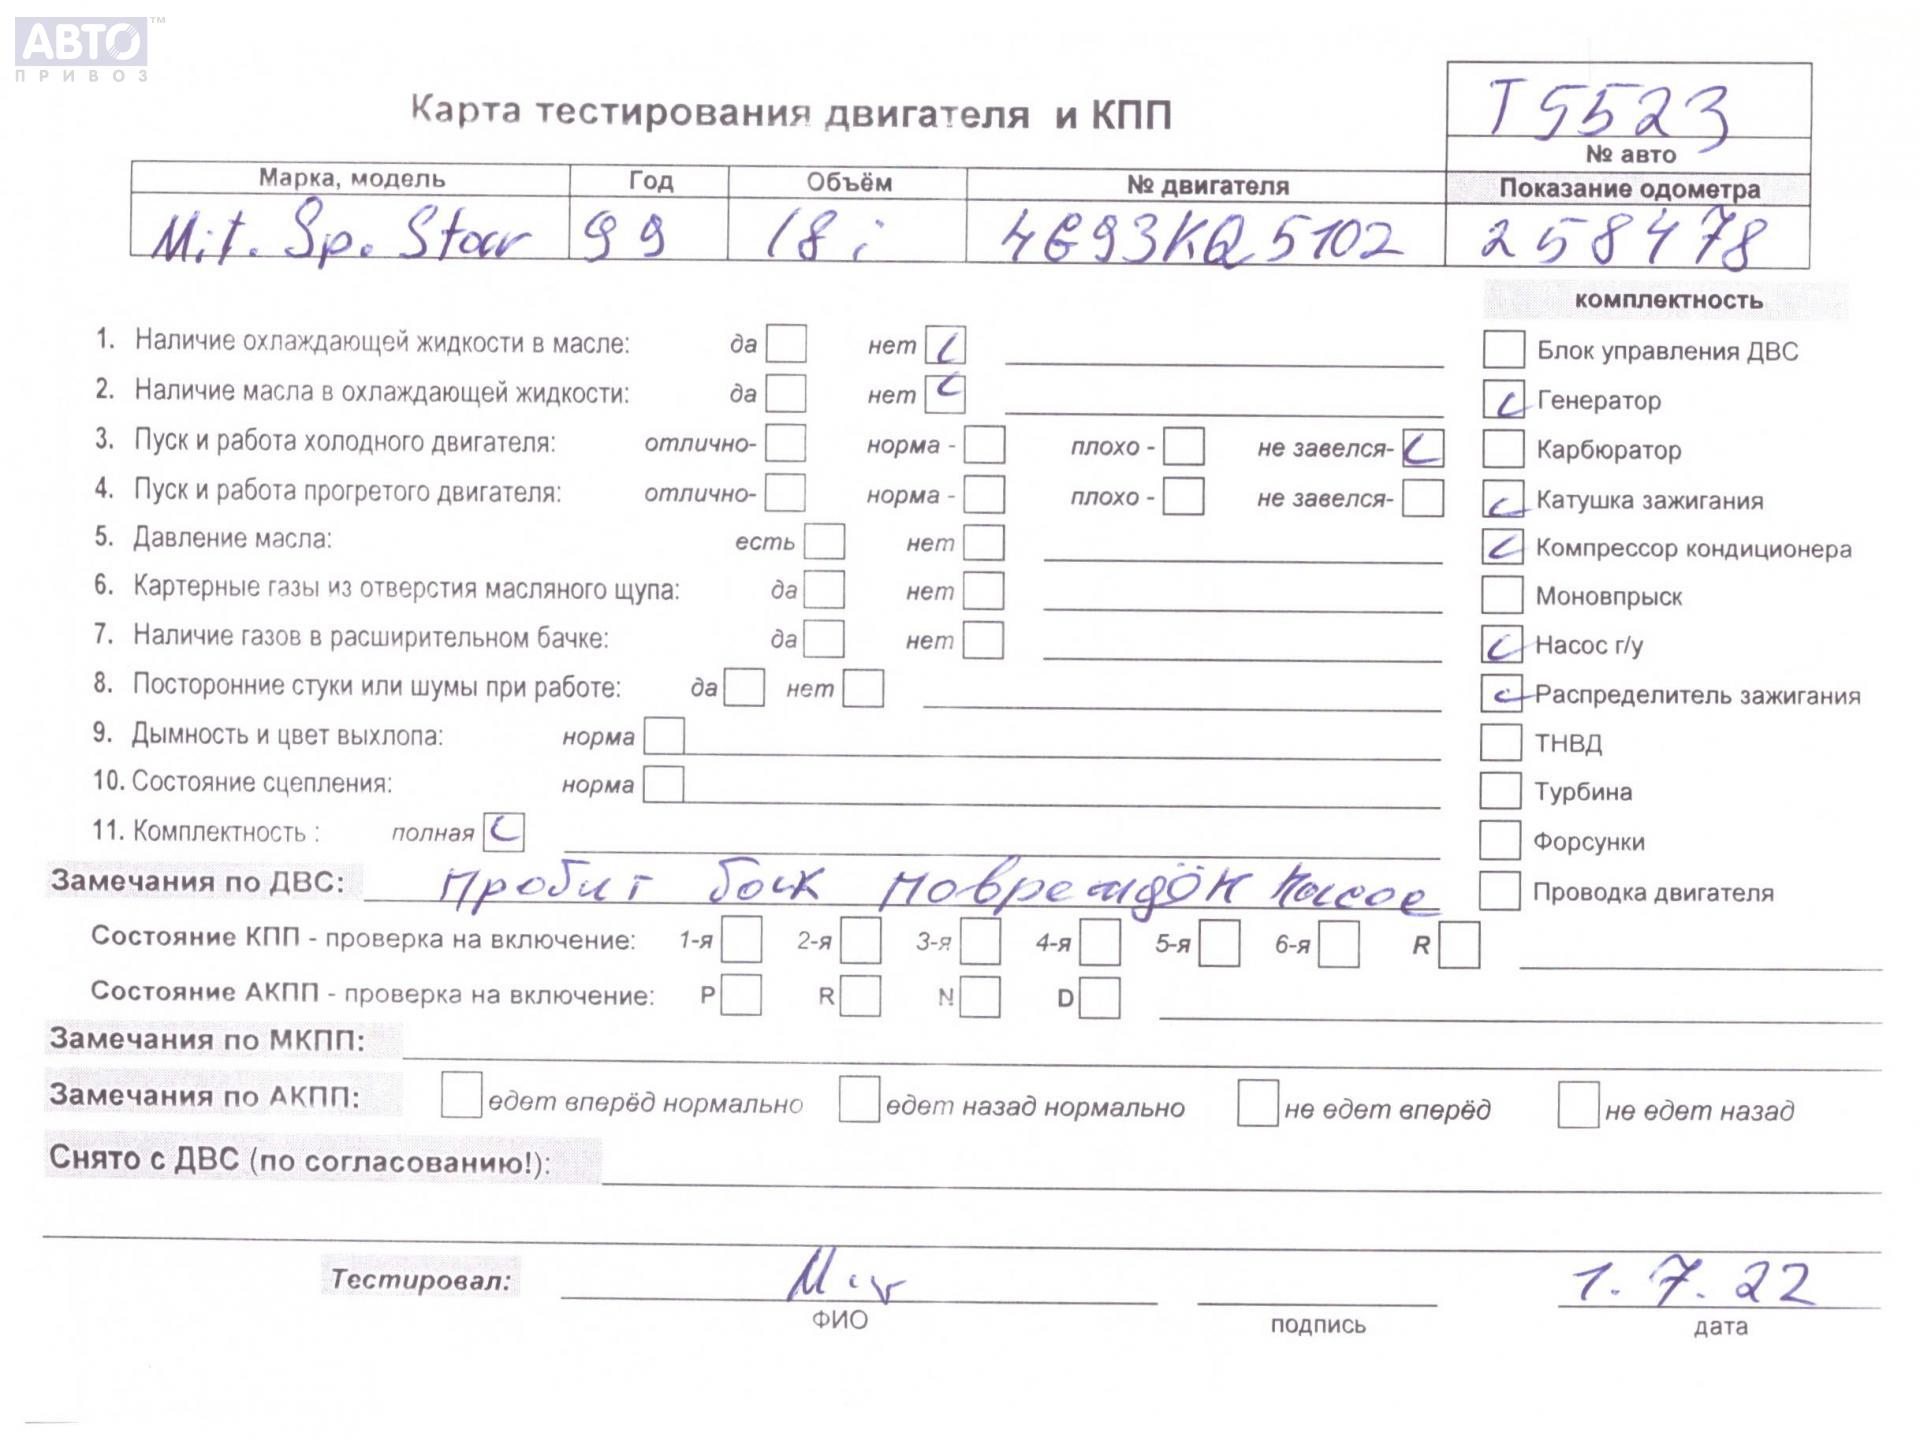 АВТО™
ПРИВОЗ
Т5523
Карта тестирования двигателя и КПП
№ авто
Марка, модель Год Объём № двигателя Показание одометра
Mit. Sp. Star 99 18i 4G93KQ5102 258478
комплектность
1. Наличие охлаждающей жидкости в масле: да нет
Блок управления ДВС
2. Наличие масла в охлаждающей жидкости: да нет
Генератор
3. Пуск и работа холодного двигателя: отлично- норма - плохо - не завелся-
Карбюратор
4. Пуск и работа прогретого двигателя: отлично- норма - плохо - не завелся-
Катушка зажигания
5. Давление масла: есть нет
Компрессор кондиционера
6. Картерные газы из отверстия масляного щупа: да нет
Моновпрыск
7. Наличие газов в расширительном бачке: да нет
Насос г/у
8. Посторонние стуки или шумы при работе: да нет
Распределитель зажигания
9. Дымность и цвет выхлопа: норма
ТНВД
10. Состояние сцепления: норма
Турбина
11. Комплектность : полная
Форсунки
Замечания по ДВС: пробит повреждён насос
Проводка двигателя
Состояние КПП - проверка на включение: 1-я 2-я 3-я 4-я 5-я 6-я R
Состояние АКПП - проверка на включение: P R N D
Замечания по МКПП:
Замечания по АКПП: едет вперёд нормально едет назад нормально не едет вперёд не едет назад
Снято с ДВС (по согласованию!):
Тестировал: 1.7.22
ФИО подпись дата